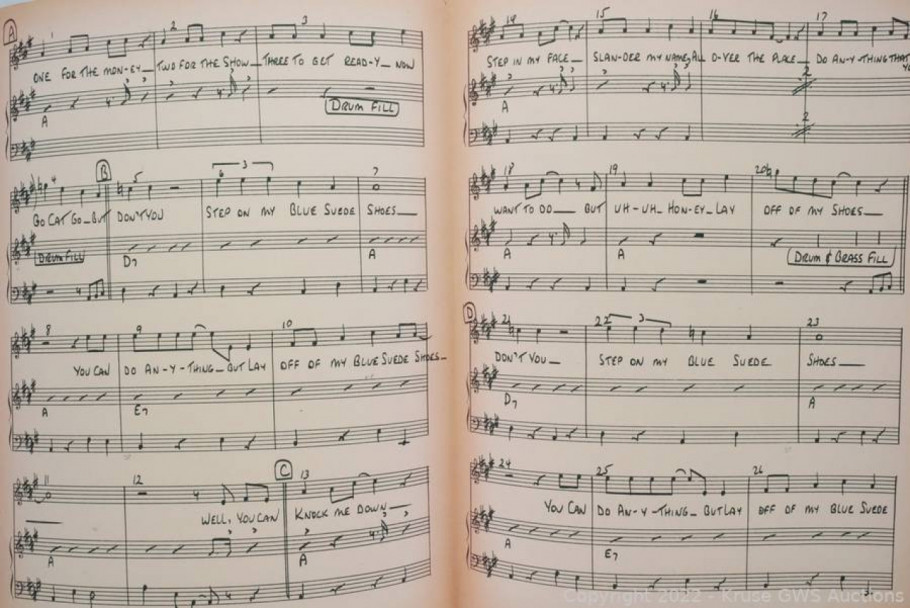 A
1 2 3
ONE FOR THE MON-EY— TWO FOR THE SHOW— THREE TO GET READ-Y— NOW
A
DRUM FILL
4 B 5 6 3 7
GO CAT GO—BUT DON'T YOU STEP ON MY BLUE SUEDE SHOES—
DRUM FILL D7 A
8 9 10
YOU CAN DO AN-Y-THING—BUT LAY OFF OF MY BLUE SUEDE SHOES—
A E7
11 12 C 13
WELL, YOU CAN KNOCK ME DOWN—
A A
14 15 16 17
STEP IN MY FACE— SLAN-DER MY NAME, ALL O-VER THE PLACE— DO AN-Y-THING THAT
A 2
2
18 19 20
WANT TO DO— BUT UH-UH HON-EY—LAY OFF OF MY SHOES—
A A DRUM & BRASS FILL
D
21 22 3 23
DON'T YOU— STEP ON MY BLUE SUEDE SHOES—
D7 A
24 25 26
YOU CAN DO AN-Y-THING—BUT LAY OFF OF MY BLUE SUEDE
A E7
Copyright 2022 - Kruse GWS Auctions